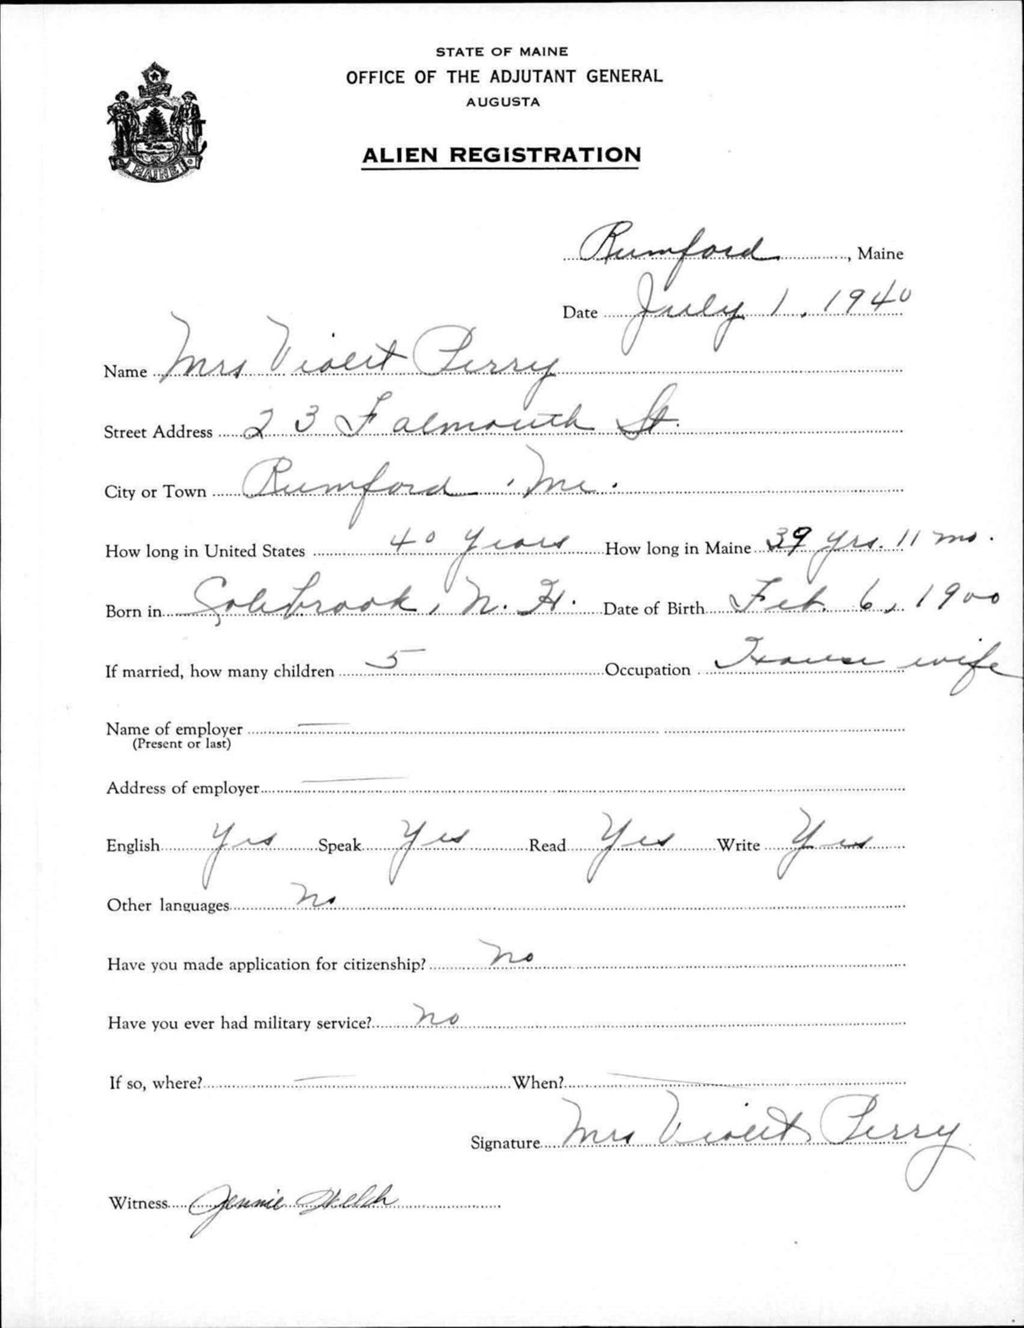 STATE OF MAINE
OFFICE OF THE ADJUTANT GENERAL
AUGUSTA
ALIEN REGISTRATION
MAINE
Rumford, Maine
Date July 1, 1940
Name Mrs Violet Perry
Street Address 23 Falmouth St.
City or Town Rumford, Me.
How long in United States 40 years How long in Maine 39 yrs. 11 mo.
Born in Colebrook, N. H. Date of Birth Feb. 6, 1900
If married, how many children 5 Occupation House wife
Name of employer —
(Present or last)
Address of employer —
English Yes Speak Yes Read Yes Write Yes
Other languages No
Have you made application for citizenship? No
Have you ever had military service? No
If so, where? — When? —
Signature Mrs Violet Perry
Witness Jennie Welch